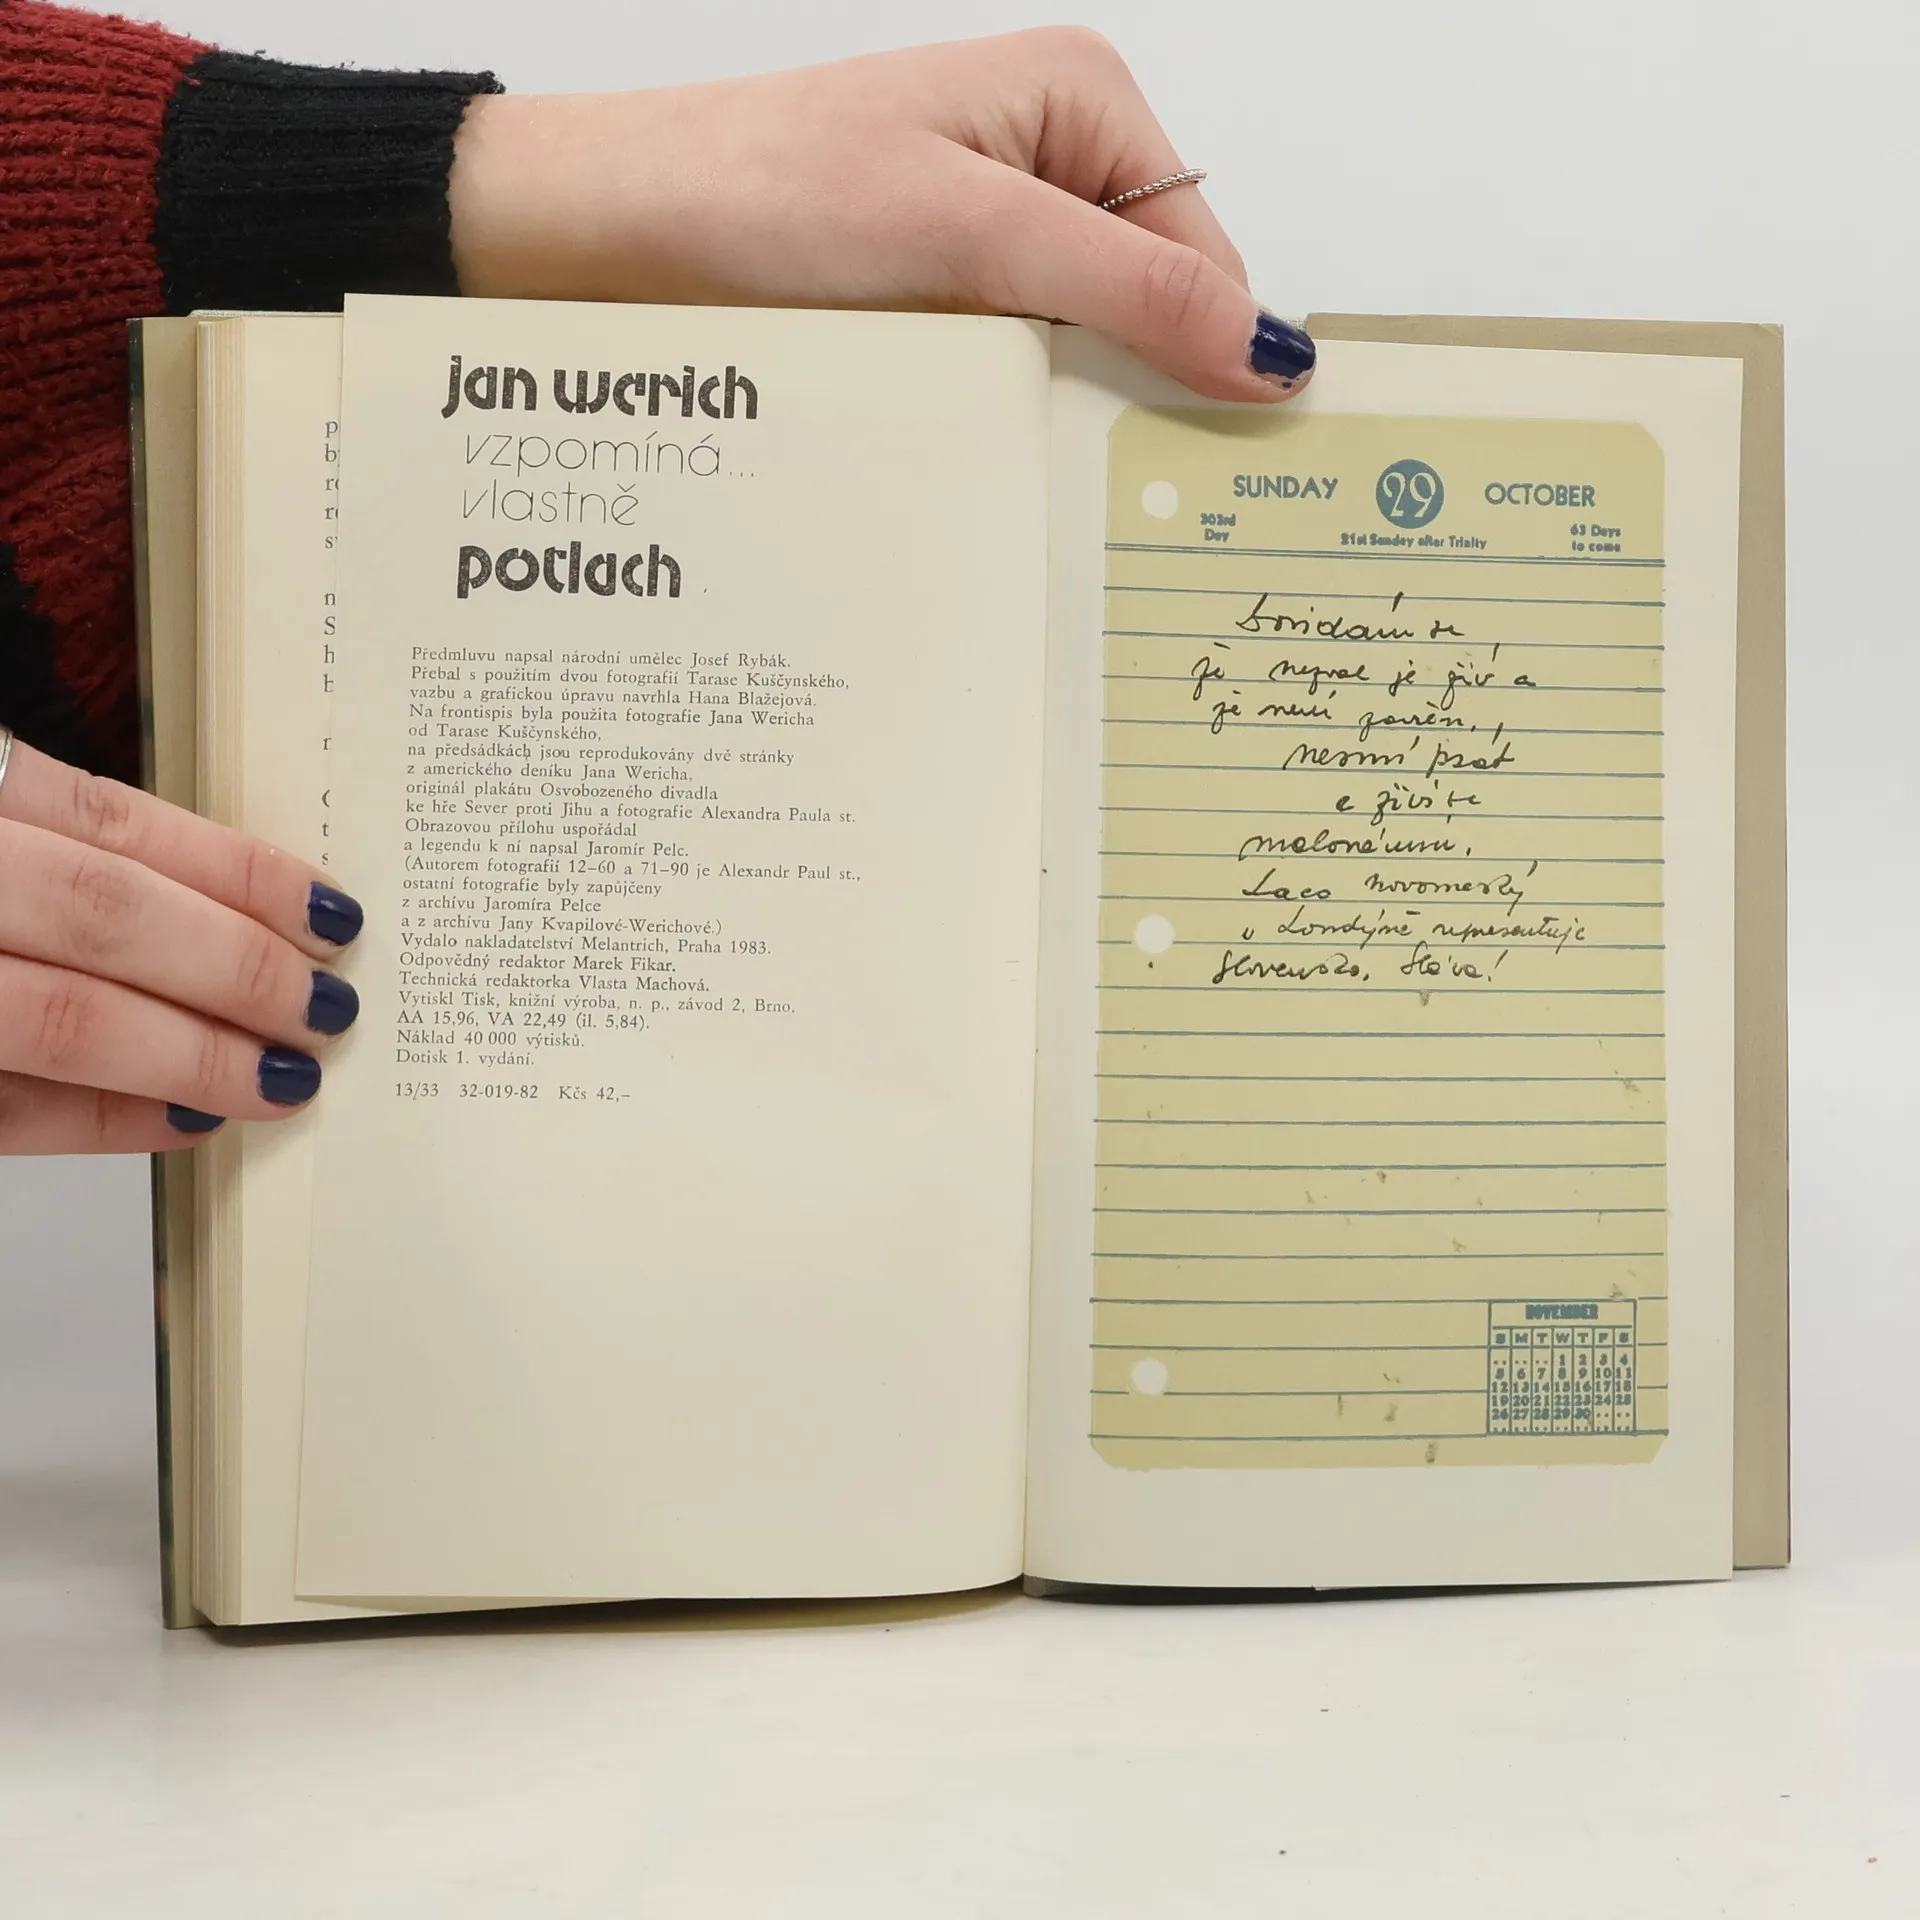 jan werich
vzpomíná...
vlastně
potlach
Předmluvu napsal národní umělec Josef Rybák.
Přebal s použitím dvou fotografií Tarase Kuščynského,
vazbu a grafickou úpravu navrhla Hana Blažejová.
Na frontispis byla použita fotografie Jana Wericha
od Tarase Kuščynského,
na předsádkách jsou reprodukovány dvě stránky
z amerického deníku Jana Wericha,
originál plakátu Osvobozeného divadla
ke hře Sever proti Jihu a fotografie Alexandra Paula st.
Obrazovou přílohu uspořádal
a legendu k ní napsal Jaromír Pelc.
(Autorem fotografií 12–60 a 71–90 je Alexandr Paul st.,
ostatní fotografie byly zapůjčeny
z archívu Jaromíra Pelce
a z archívu Jany Kvapilové-Werichové.)
Vydalo nakladatelství Melantrich, Praha 1983.
Odpovědný redaktor Marek Fikar.
Technická redaktorka Vlasta Machová.
Vytiskl Tisk, knižní výroba, n. p., závod 2, Brno.
AA 15,96, VA 22,49 (il. 5,84).
Náklad 40 000 výtisků.
Dotisk 1. vydání.
13/33 32-019-82 Kčs 42,–
SUNDAY 29 OCTOBER
303rd Day
21st Sunday after Trinity
63 Days to come
Dovídám se,
že Nezval je živ a
že není zavřen,
nesmí psát
a živí se
malováním.
Laco Novomeský
v Londýně representuje
Slovensko. Sláva!
NOVEMBER
S M T W T F S
.. .. .. 1 2 3 4
5 6 7 8 9 10 11
12 13 14 15 16 17 18
19 20 21 22 23 24 25
26 27 28 29 30 .. ..